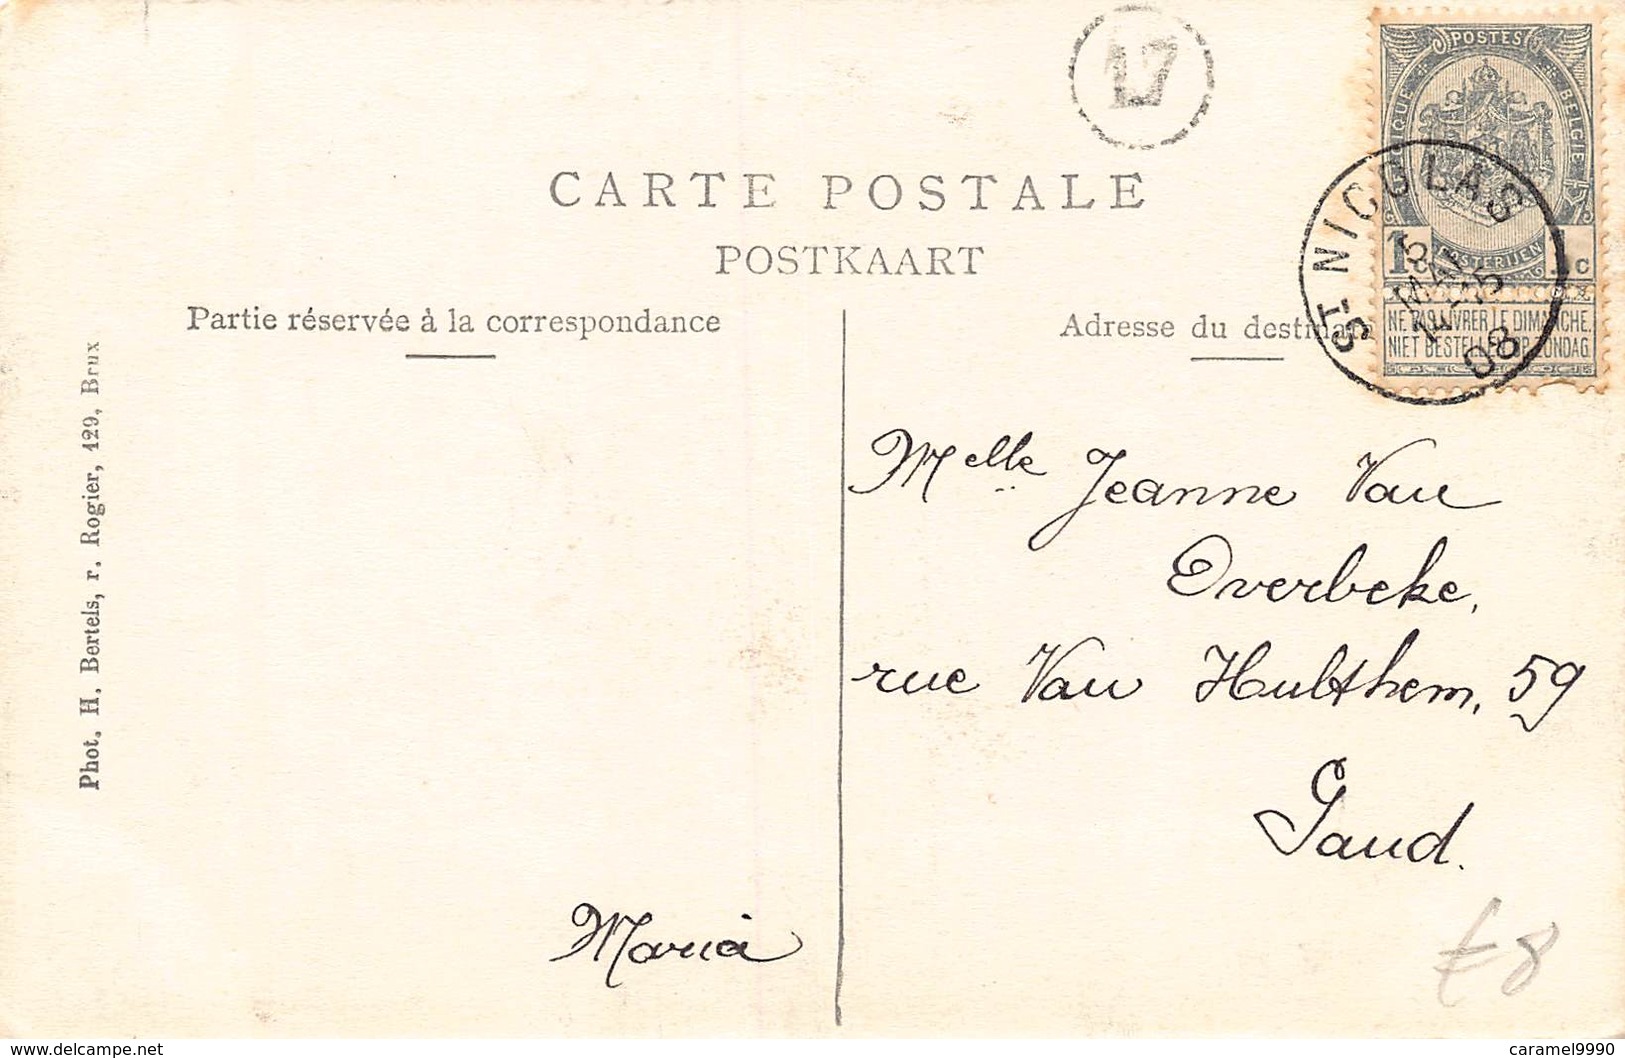 17
POSTES
BELGIQUE
BELGIE
POSTERIJEN
1c
NE PAS LIVRER LE DIMANCHE
NIET BESTELLEN OP ZONDAG
ST NICOLAS
08
CARTE POSTALE
POSTKAART
Partie réservée à la correspondance
Adresse du destina
Phot. H. Bertels, r. Rogier, 129, Brux
Melle Jeanne Van
Overbeke,
rue Van Hulthem, 59
Gand.
Maria
£8
delcampe.net
caramel9990